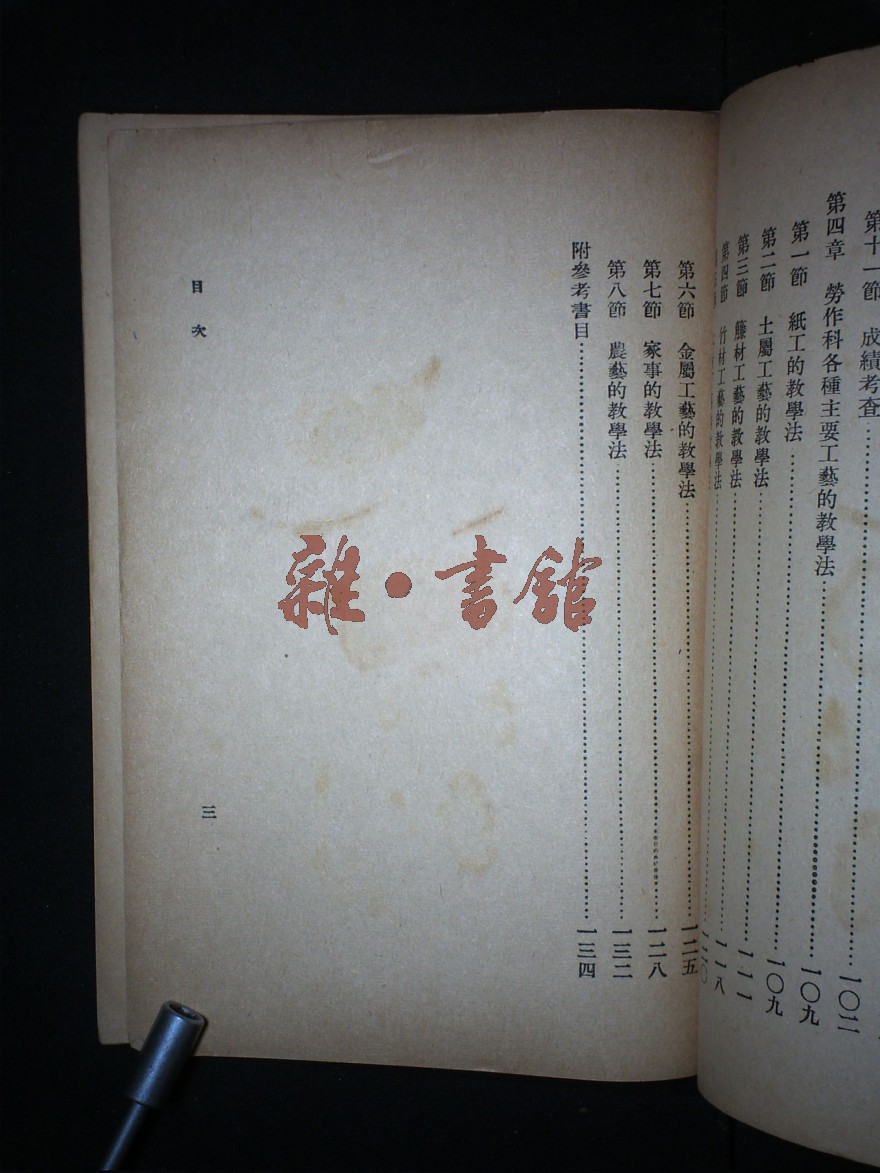 第十一節 成績考查……一〇二
第四章 勞作科各種主要工藝的教學法……一〇九
第一節 紙工的教學法……一〇九
第二節 土屬工藝的教學法……一一一
第三節 籐材工藝的教學法……一一八
第四節 竹材工藝的教學法……一二〇
第六節 金屬工藝的教學法……一二五
第七節 家事的教學法……一二八
第八節 農藝的教學法……一三二
附參考書目……一三四
目次
三
雜·書館